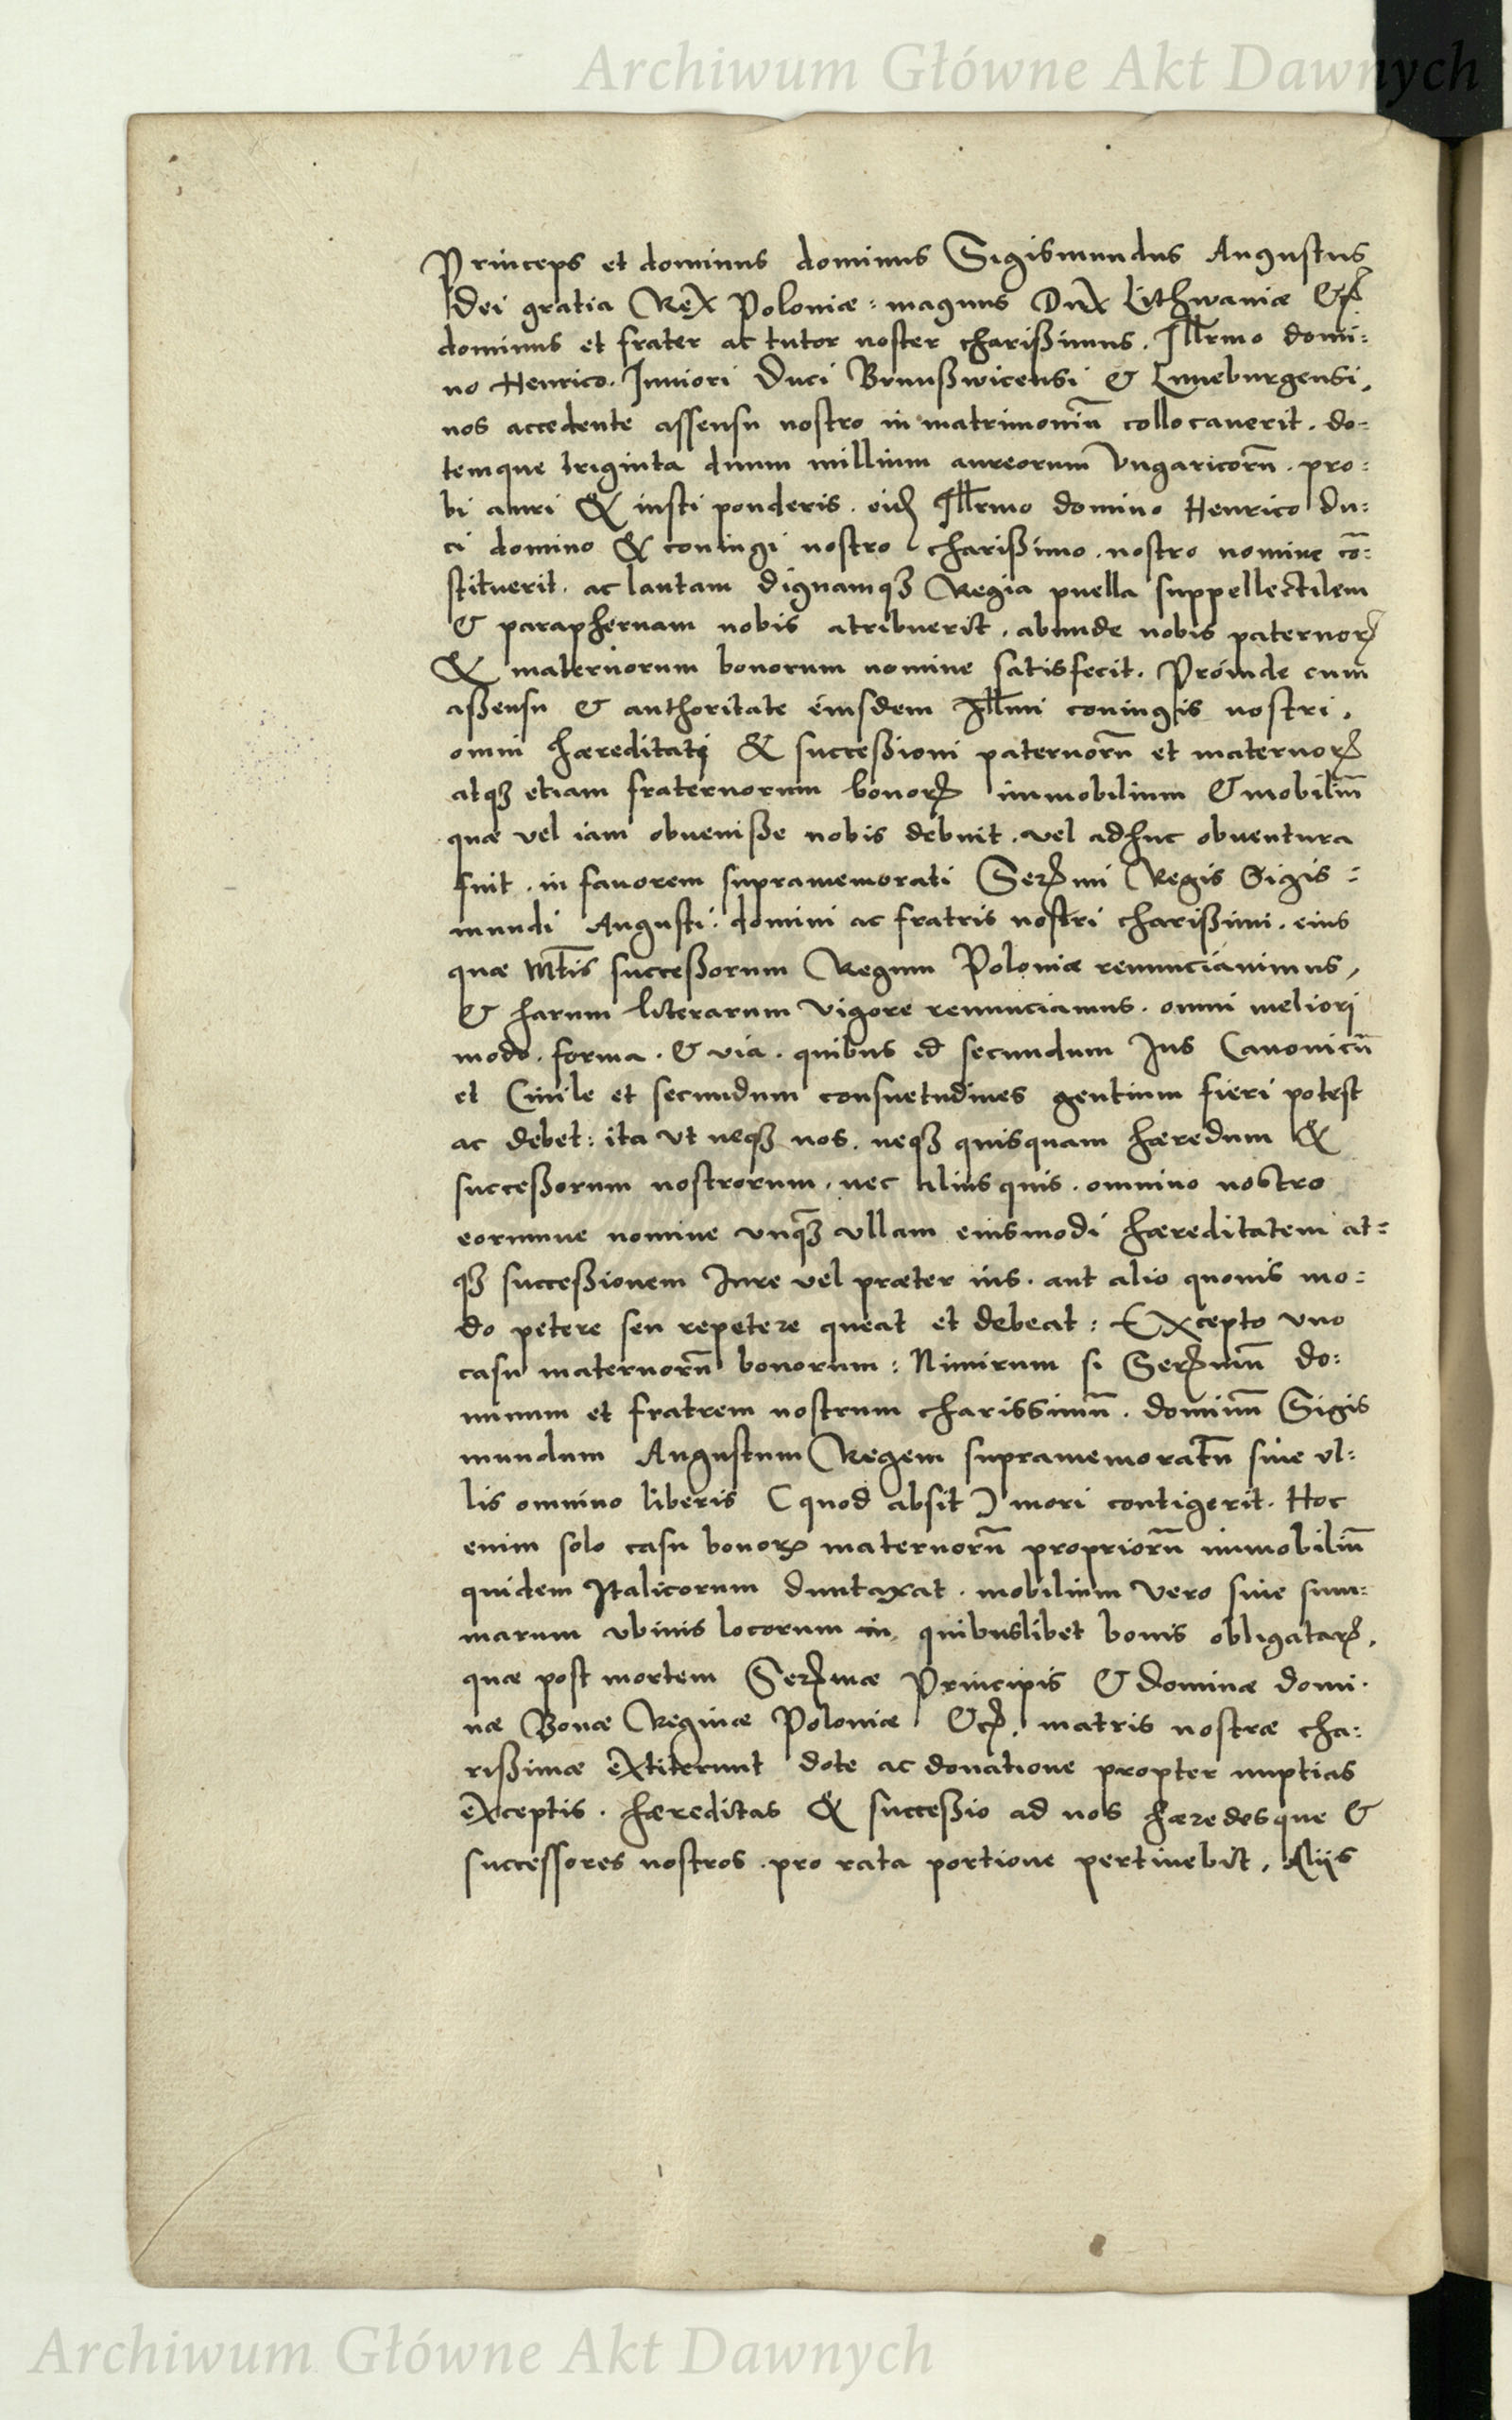 Archiwum Główne Akt Dawnych
Princeps et dominus dominus Sigismundus Augustus
Dei gratia Rex Poloniæ: magnus Dux Lithwaniæ &c
dominus et frater ac tutor noster charißimus. Illrmo domi:
no Henrico. Iuniori Duci Brunßwicensi & Luneburgensi,
nos accedente assensu nostro in matrimoniū collocauerit. do:
temque triginta duum millium aureorum Vngaricorū. pro:
bi auri & iusti ponderis. eidē Illrmo domino Henrico du:
ci domino & coniugi nostro charißimo. nostro nomine cō:
stituerit. ac lautam dignamqꝫ Regia puella suppellectilem
& paraphernam nobis atribuerit, abunde nobis paternoꝝ
& maternorum bonorum nomine satisfecit. Proinde cum
aßensu & authoritate eiusdem Illmi coniugis nostri,
omni hæreditati & succeßioni paternorū et maternoꝝ
atqꝫ etiam fraternorum bonoꝝ immobilium & mobiliū
quæ vel iam obueniße nobis debuit. vel adhuc obuentura
fuit. in fauorem supramemorati Serꝫmi Regis Sigis:
mundi Augusti: domini ac fratris nostri charißimi. eius
quæ Mtis succeßorum Regum Poloniæ renunciauimus,
& harum literarum vigore renunciamus. omni meliori
modo. forma. & via. quibus id secundum Ius Canonicū
et Ciuile et secundum consuetudines gentium fieri potest
ac debet: ita vt neqꝫ nos. neqꝫ quisquam hæredum &
succeßorum nostrorum. nec alius quis. omnino nostro
eorumue nomine vnqꝫ vllam eiusmodi hæreditatem at:
qꝫ succeßionem Iure vel præter ius. aut alio quouis mo:
do petere seu repetere queat et debeat: Excepto vno
casu maternorū bonorum: Nimirum si Serꝫmū do:
minum et fratrem nostrum charissimū. dominū Sigis
mundum Augustum Regem supramemoratū sine vl:
lis omnino liberis (quod absit) mori contigerit. Hoc
enim solo casu bonoꝝ maternorū propriorū immobiliū
quidem Italicorum duntaxat. mobilium vero siue sum:
marum vbiuis locorum in quibuslibet bonis obligataꝝ,
quæ post mortem Serꝫmæ Principis & dominæ domi.
næ Bonæ Reginæ Poloniæ &c. matris nostræ cha:
rißimæ extiterunt dote ac donatione propter nuptias
exceptis. hæreditas & succeßio ad nos hæredesque &
successores nostros. pro rata portione pertinebit, Aliis
Archiwum Główne Akt Dawnych